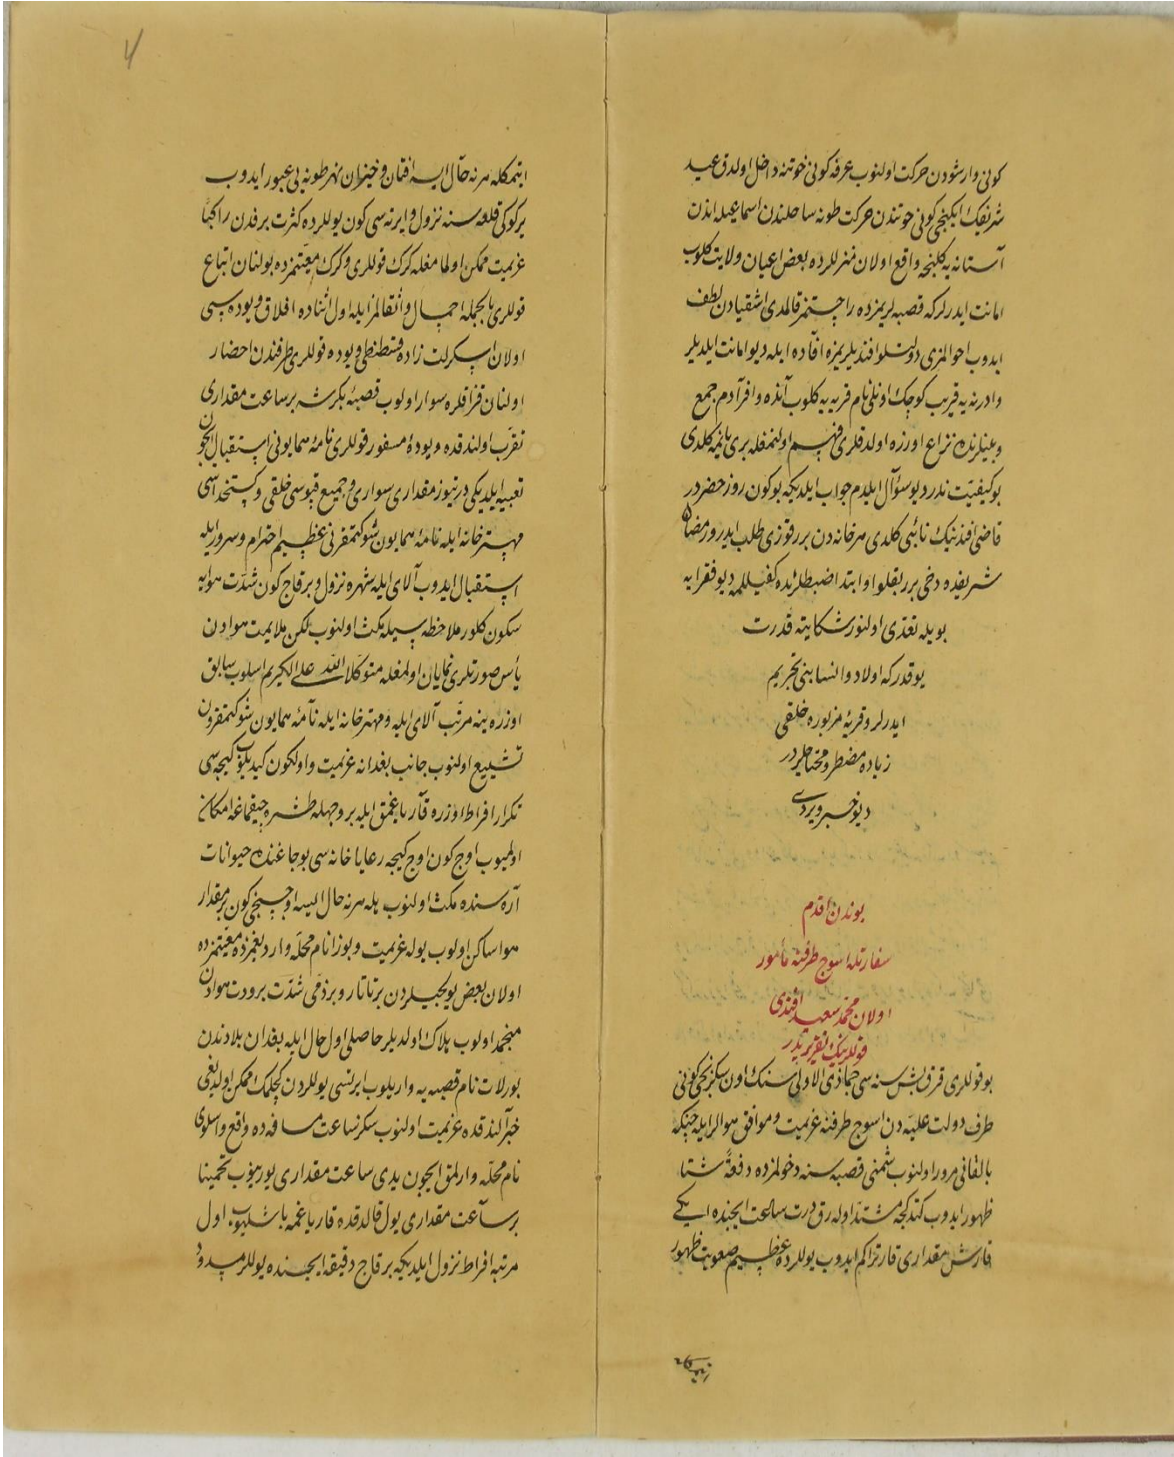 كونى وارشودن حركت اولنوب عرفه كونى خوتنه داخل اولدق عيد
شريفك ايكنجى كونى خوتندن حركت طونه ساحلندن اسماعيله اندن
آستانه يه كلنجه واقع اولان منزللرده بعض اعيان ولايت كلوب
امانت ايدرلر كه قصبه لريمزده راحتمز قالمدى اشقيادن لطف
ايدوب احوالمزى دولتلو افنديلريمزه افاده ايله ديو امانت ايلديلر
وادرنه يه قريب كوچك اونلى نام قريه يه كلوب آنده وافر آدم جمع
وبينلرنده نزاع اوزره اولدقلرى فهم اولنمغله برى يانمه كلدى
بو كيفيت ندر ديو سؤال ايلدم جواب ايلديكه بوكون روز خضردر
قاضى افندينك نائبى كلدى هر خانه دن برر قوزى طلب ايدر ورمضان
شريفده دخى برر بقلوا وابتدا ضبطلرنده كفيللمه ديو فقرايه
بويله تعدى اولنور شكايته قدرت
يوقدر كه اولاد والنسا بنى تجريم
ايدرلر وقريهٔ مزبوره خلقى
زياده مضطر ومحتاجلردر
ديو خبر ويردى
بوندن اقدم
سفارتله اسوج طرفنه مأمور
اولان محمد سعيد افندى
قوللرينك تقريريدر
بو قوللرى قرق بش سنه سى جماذى الاولى سنك اون سكزنجى كونى
طرف دولت عليه دن اسوج طرفنه عزيمت وموافق هوالر ايله چنكه
بالقانى مرور اولنوب شمنى قصبه سنه دخولمزده دفعةً شتا
ظهور ايدوب كتدكجه مشتد اوله رق درت ساعت ايجنده ايكى
قارش مقدارى قار تراكم ايدوب يوللرده عظيم صعوبت ظهور
ايتمكله
ايتمكله هرنه حال ايسه افتان وخيزان نهر طونه يى عبور ايدوب
يركوكى قلعه سنه نزول وايرته سى كون يوللرده كثرت برفدن راكباً
عزيمت ممكن اولمامغله كرك قوللرى وكرك معيتمزده بولنان اتباع
قوللرى بالجمله احمال واثقالمز ايله اول اثناده افلاق ويوده سى
اولان اسكرلت زاده قسطنطين ويوده قوللرى طرفندن احضار
اولنان قزاقلره سوار اولوب قصبهٔ بكرشه بر ساعت مقدارى
تقرّب اولندقده ويودهٔ مسفور قوللرى نامهٔ همايونى استقبال ايجون
تعبيه ايلديكى درتيوز مقدارى سوارى وجميع قپوسى خلقى وكتخداسى
مهترخانه ايله نامهٔ همايون شوكتمقرنى عظيم احترام وسرور ايله
استقبال ايدوب آلاى ايله شهره نزول وبر قاچ كون شدت هوايه
سكون كلور ملاحظه سيله مكث اولنوب لكن ملايمت هوادن
يأس صورتلرى نمايان اولمغله متوكلا على الله الكريم اسلوب سابق
اوزره ينه مرتب آلاى ايله ومهترخانه ايله نامهٔ همايون شوكتمقرون
تشييع اولنوب جانب بغدانه عزيمت واولكون كيديلوب كيجه سى
تكرار افراط اوزره قار ياغمق ايله بر وجهله طشره چيقمغه امكان
اولميوب اوچ كون اوچ كيجه رعايا خانه سى بوجاغنده حيوانات
آره سنده مكث اولنوب هله هرنه حال ايسه اوچنجى كون بر مقدار
هوا ساكن اولوب يوله عزيمت وبوزا نام محله واردلغمزده معيتمزده
اولان بعض يولجيلردن بر تاتار وبر ذمى شدت برودت هوادن
منجمد اولوب هلاك اولديلر حاصلى اول حال ايله بغدان بلادندن
بورلات نام قصبه يه واريلوب ايرتسى يوللردن كچلمك ممكن اولديغى
خبر آلندقده عزيمت اولنوب سكز ساعت مسافه ده واقع واسلوى
نام محله وارلمق ايچون يدى ساعت مقدارى يوريوب تخمينا
بر ساعت مقدارى يول قالدقده قار ياغمه باشليوب اول
مرتبه افراط نزول ايلديكه بر قاچ دقيقه ايچنده يوللر مسدود